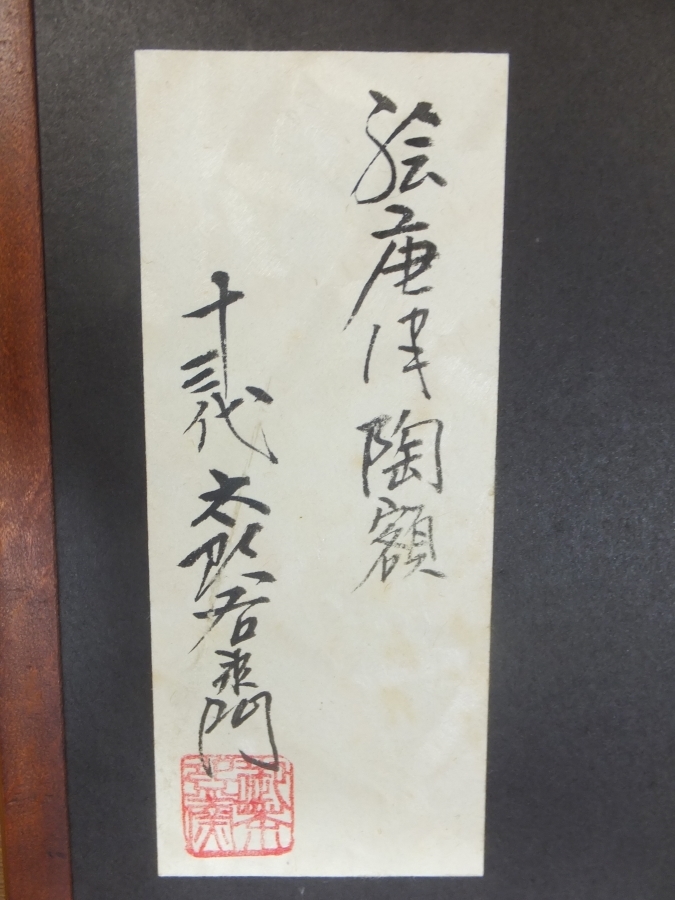 絵唐津陶額
十三代 太郎右衛門